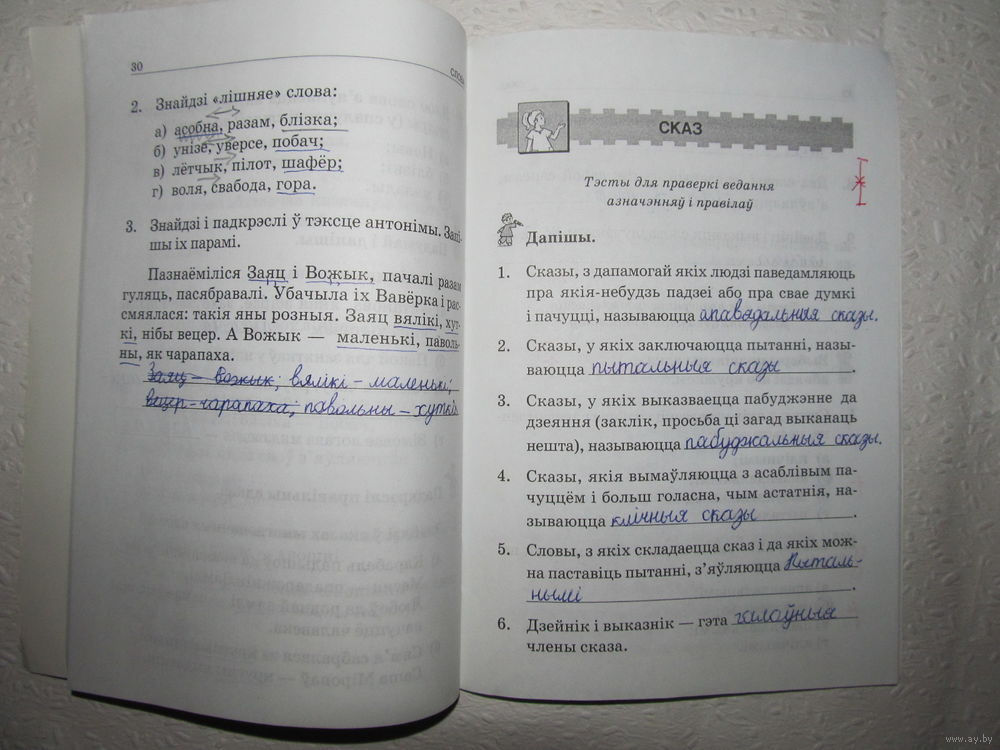 30
2. Знайдзі «лішняе» слова:
а) асобна, разам, блізка;
б) унізе, уверсе, побач;
в) лётчык, пілот, шафёр;
г) воля, свабода, гора.
3. Знайдзі і падкрэслі ў тэксце антонімы. Запі-
шы іх парамі.
Пазнаёміліся Заяц і Вожык, пачалі разам
гуляць, пасябравалі. Убачыла іх Вавёрка і рас-
смяялася: такія яны розныя. Заяц вялікі, хут-
кі, нібы вецер. А Вожык — маленькі, паволь-
ны, як чарапаха.
Заяц – вожык; вялікі – маленькі;
вецер – чарапаха; павольны – хуткі
СКАЗ
Тэсты для праверкі ведання
азначэнняў і правілаў
Дапішы.
1. Сказы, з дапамогай якіх людзі паведамляюць
пра якія-небудзь падзеі або пра свае думкі
і пачуцці, называюцца апавядальныя сказы.
2. Сказы, у якіх заключаюцца пытанні, назы-
ваюцца пытальныя сказы.
3. Сказы, у якіх выказваецца пабуджэнне да
дзеяння (заклік, просьба ці загад выканаць
нешта), называюцца пабуджальныя сказы.
4. Сказы, якія вымаўляюцца з асаблівым па-
чуццём і больш голасна, чым астатнія, на-
зываюцца клічныя сказы.
5. Словы, з якіх складаецца сказ і да якіх мож-
на паставіць пытанні, з'яўляюцца Пыталь-
нымі.
6. Дзейнік і выказнік — гэта галоўныя
члены сказа.
www.ay.by